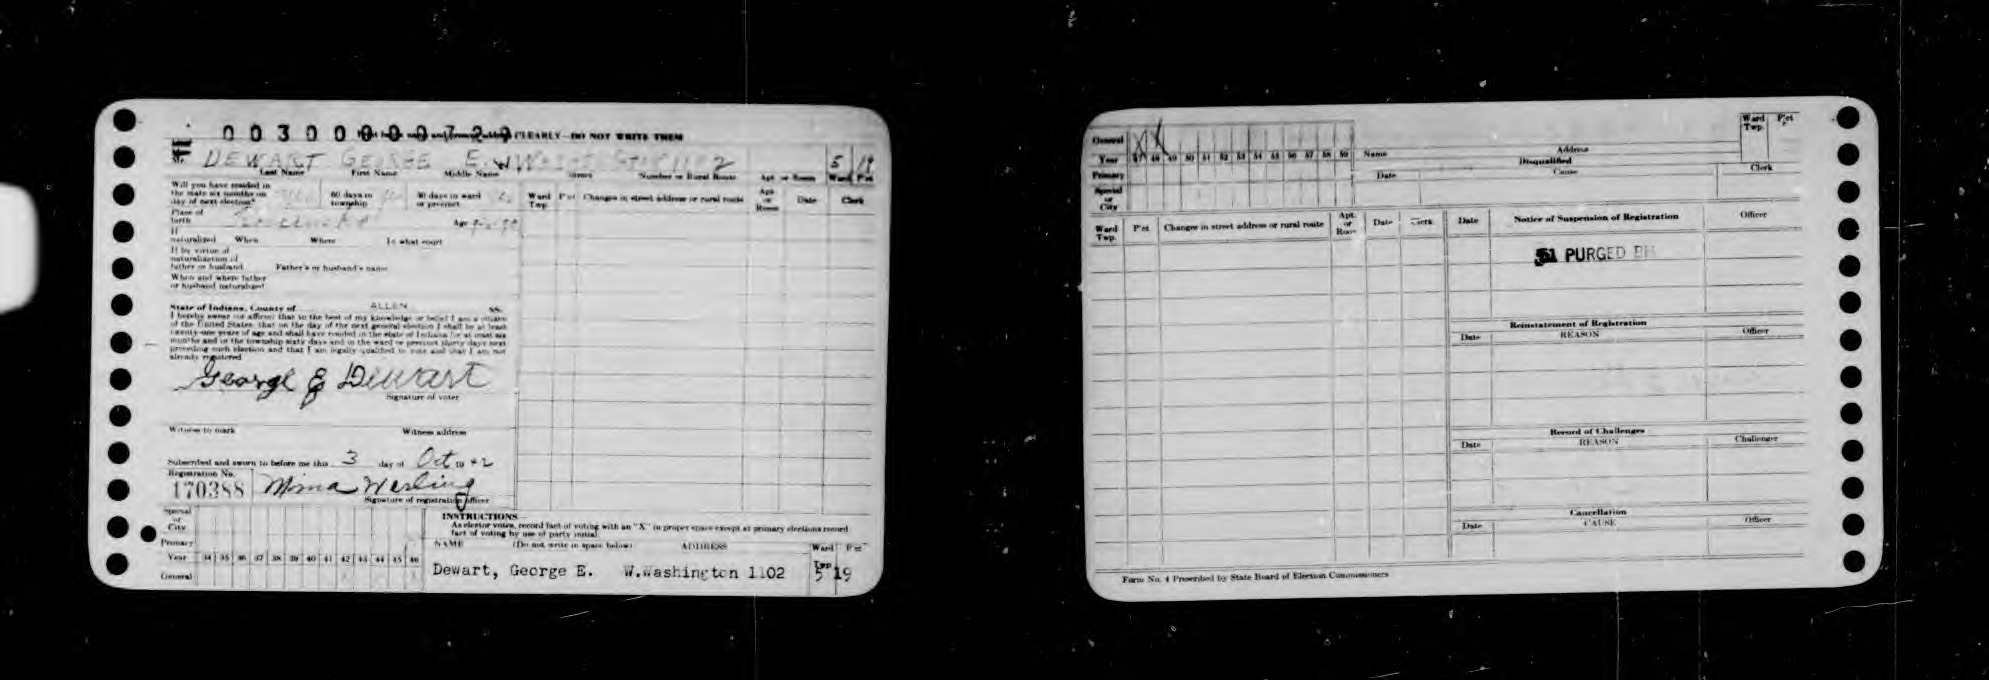 003000000729
CLEARLY—DO NOT WRITE THEM
DEWART GEORGE E. 5 19
Last Name First Name Middle Name Street Number or Rural Route Apt. or Room Ward Pct
Will you have resided in
the state six months on 60 days in 30 days in ward
day of next election? township or precinct
Ward Twp. Pct Changes in street address or rural route Apt. or Room Date Clerk
Place of
birth Age
If
naturalized When Where In what court
If by virtue of
naturalization of
father or husband Father's or husband's name
When and where father
or husband naturalized
State of Indiana, County of ALLEN SS.
I hereby swear (or affirm) that to the best of my knowledge or belief I am a citizen
of the United States; that on the day of the next general election I shall be at least
twenty-one years of age and shall have resided in the state of Indiana for at least six
months and in the township sixty days and in the ward or precinct thirty days next
preceding such election and that I am legally qualified to vote and that I am not
already registered
George E Dewart
Signature of voter
Witness to mark Witness address
Subscribed and sworn to before me this 3 day of Oct 19 42
Registration No.
170388 Werling
Signature of registration officer
Special
or
City
Primary
Year 34 35 36 37 38 39 40 41 42 43 44 45 46
General
INSTRUCTIONS—
As elector votes, record fact of voting with an "X" in proper space except at primary elections record
fact of voting by use of party initial.
NAME (Do not write in space below) ADDRESS Ward Twp Pct
Dewart, George E. W.Washington 1102 5 19
General X X
Year 47 48 49 50 51 52 53 54 55 56 57 58 59
Primary
Special
or
City
Name Address Ward Twp. Pct
Disqualified
Date Cause Clerk
Ward Twp. Pct Changes in street address or rural route Apt. or Room Date Clerk
Date Notice of Suspension of Registration Officer
51 PURGED
Reinstatement of Registration
Date REASON Officer
Record of Challenges
Date REASON Challenger
Cancellation
Date CAUSE Officer
Form No. 4 Prescribed by State Board of Election Commissioners